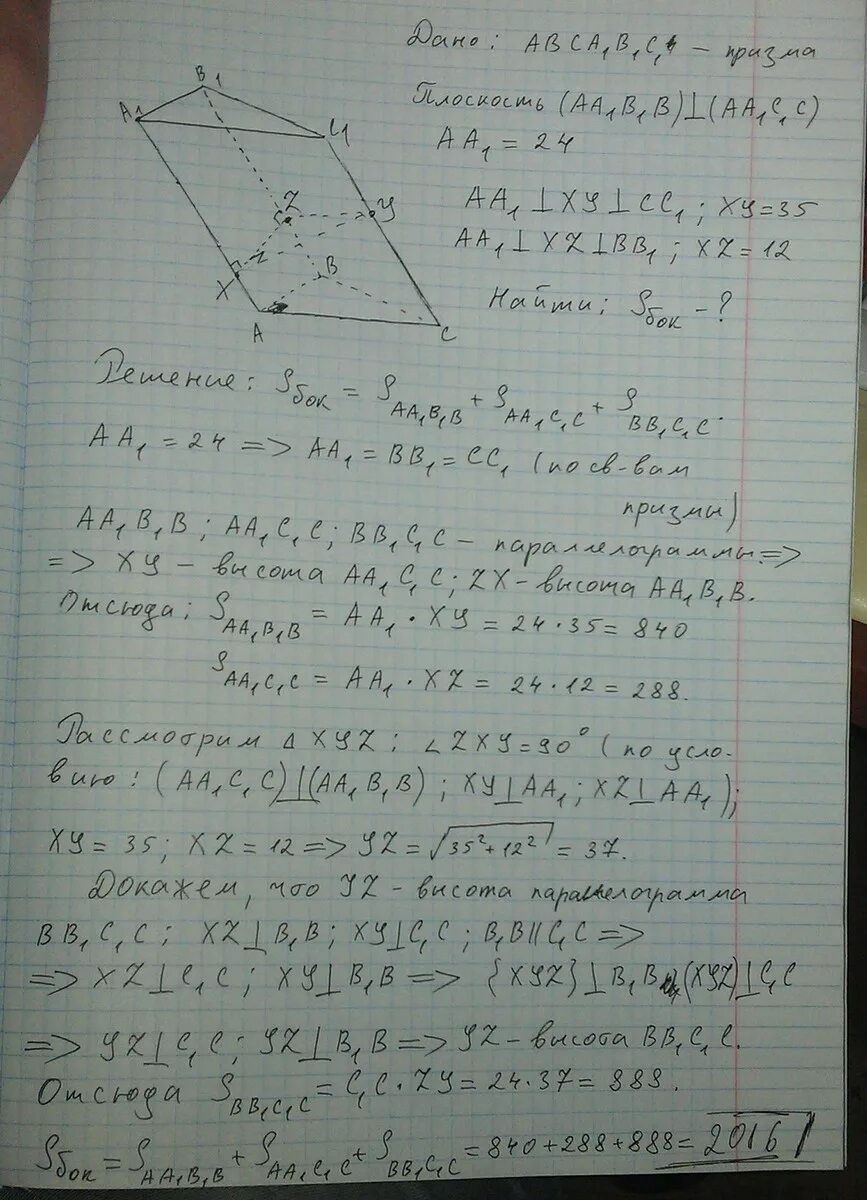 Дано: ABCA₁B₁C₁ - призма
Плоскость (AA₁B₁B)⊥(AA₁C₁C)
AA₁ = 24
AA₁ ⊥ XY ⊥ CC₁; XY=35
AA₁ ⊥ XZ ⊥ BB₁; XZ=12
Найти: Sбок - ?
B₁
A₁
C₁
Z
Y
X
B
A
C
Решение: Sбок = S AA₁B₁B + S AA₁C₁C + S BB₁C₁C.
AA₁ = 24 => AA₁ = BB₁ = CC₁ (по св-вам
призмы)
AA₁B₁B; AA₁C₁C; BB₁C₁C - параллелограммы. =>
=> XY - высота AA₁C₁C; ZX - высота AA₁B₁B.
Отсюда: S AA₁B₁B = AA₁ · XY = 24·35 = 840
S AA₁C₁C = AA₁ · XZ = 24·12 = 288.
Рассмотрим Δ XYZ: ∠ZXY=90° (по усло-
вию: (AA₁C₁C)⊥(AA₁B₁B); XY⊥AA₁; XZ⊥AA₁);
XY = 35; XZ = 12 => YZ = √35²+12² = 37.
Докажем, что YZ - высота параллелограмма
BB₁C₁C; XZ⊥B₁B; XY⊥C₁C; B₁B||C₁C =>
=> XZ⊥C₁C; XY⊥B₁B => {XYZ}⊥B₁B и (XYZ)⊥C₁C
=> YZ⊥C₁C; YZ⊥B₁B => YZ - высота BB₁C₁C.
Отсюда S BB₁C₁C = C₁C · ZY = 24·37 = 888.
Sбок = S AA₁B₁B + S AA₁C₁C + S BB₁C₁C = 840+288+888 = 2016